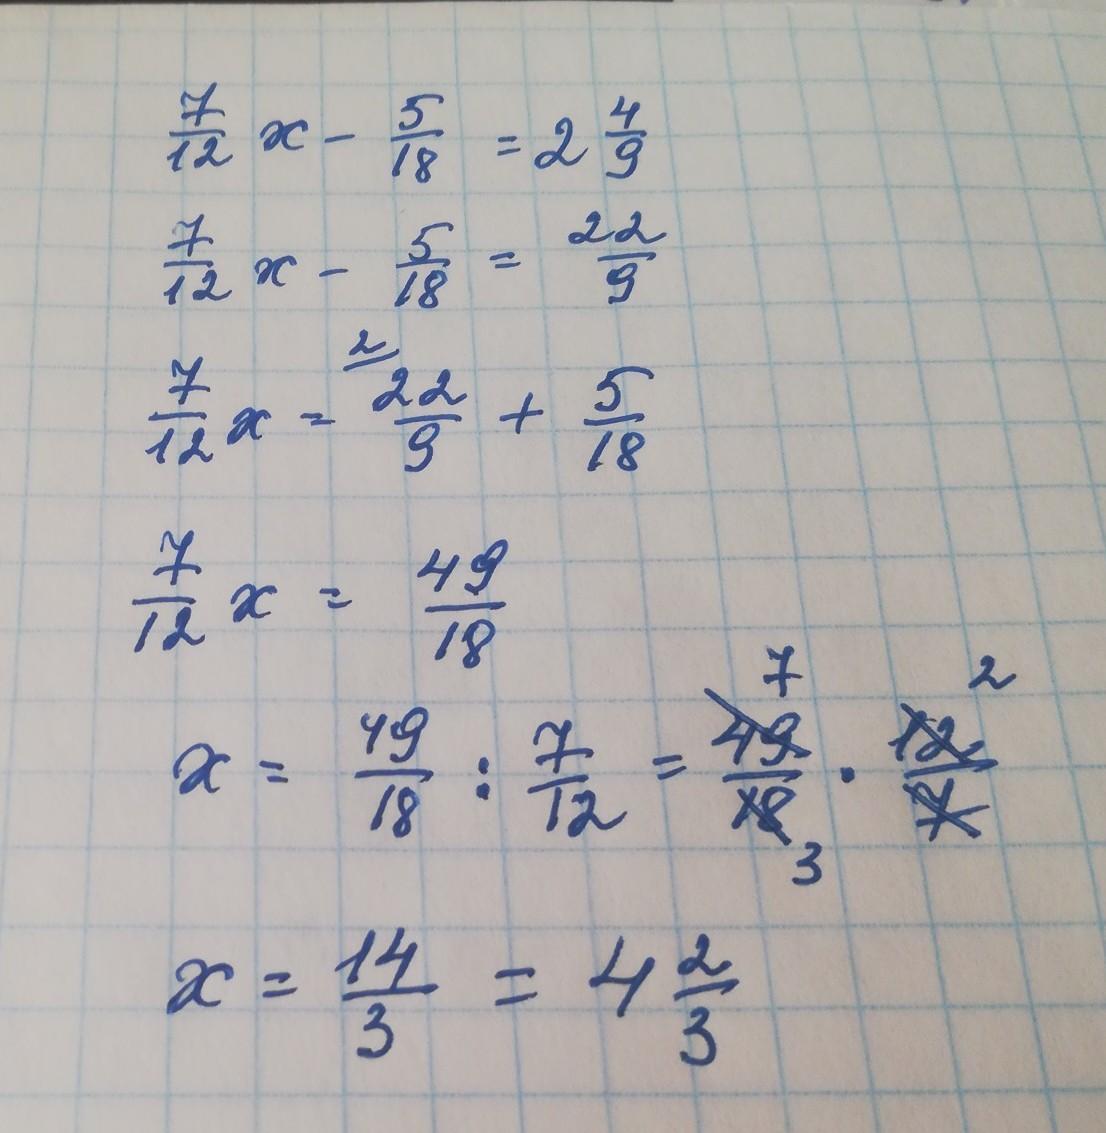 7/12 x - 5/18 = 2 4/9
7/12 x - 5/18 = 22/9
2
7/12 x = 22/9 + 5/18
7/12 x = 49/18
7 2
x = 49/18 : 7/12 = 49/18 · 12/7
3
x = 14/3 = 4 2/3